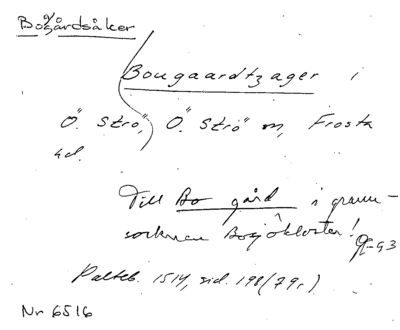 Bogårdsåker
Bougaardtzager i
Ö. Strö, Ö. Strö sn, Frosta
hd.
Till Bo gård i grann-
socknen Bosjökloster!
Palteb. 1514, sid. 198 (79r)
Nr 6516